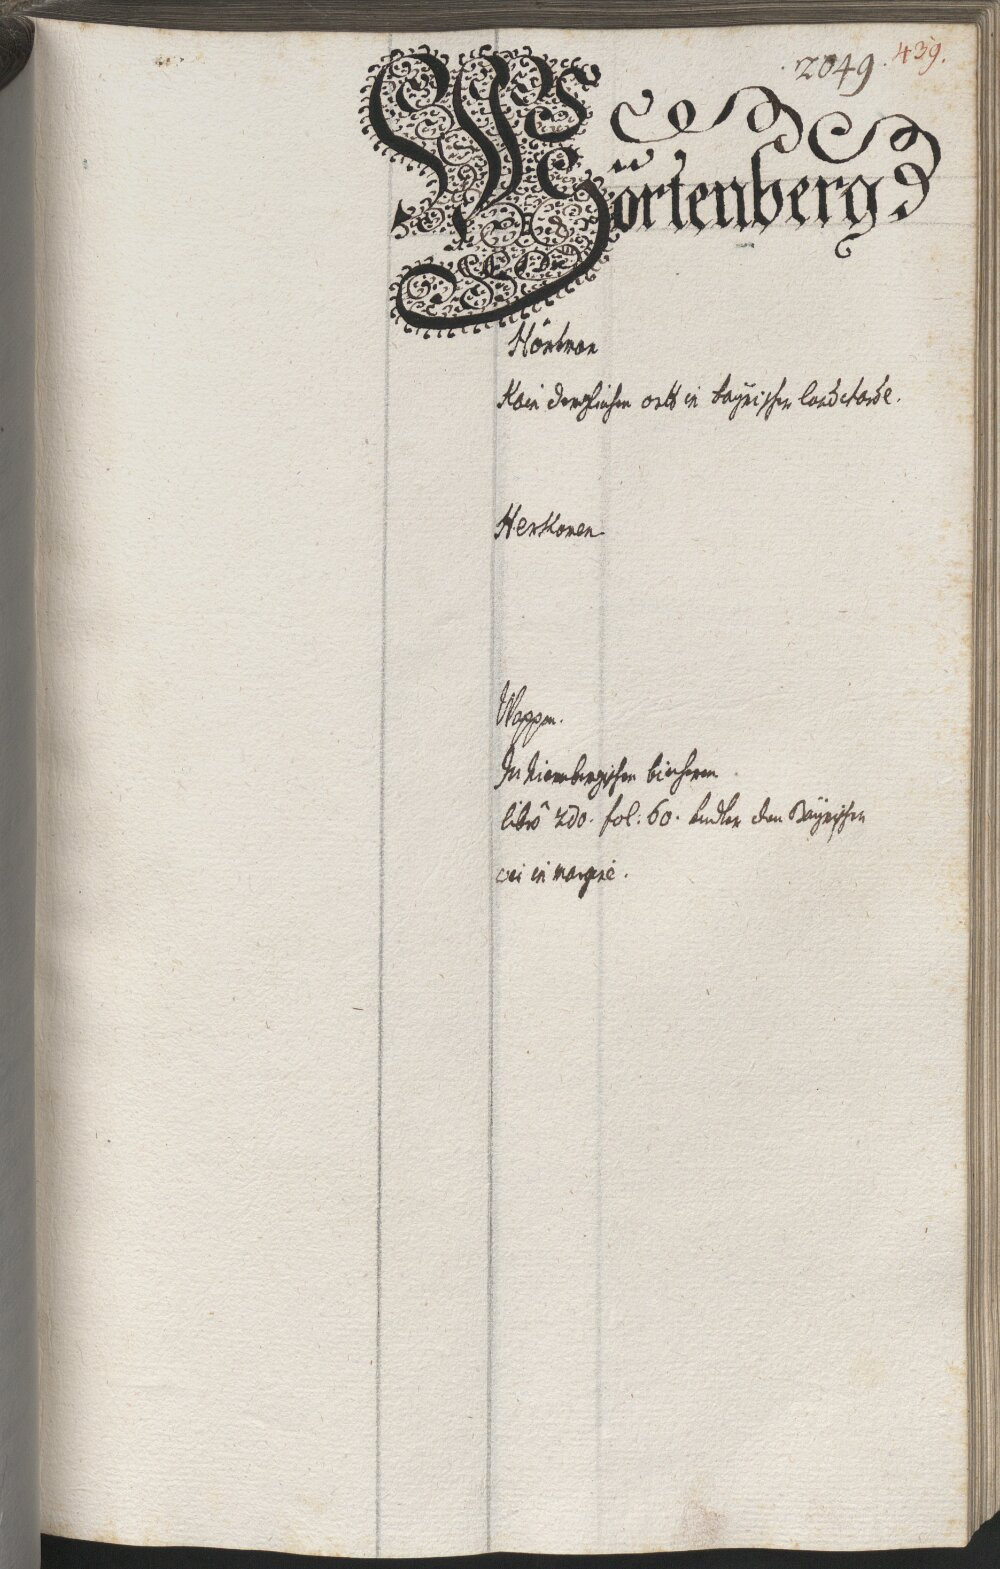 2049. 439.
Wörtenberg
Kain dergleichen orth in bayrischer landtafel.
Herkomen.
Wappen.
In Nirnbergischen biechern
libro 2do. fol: 60. under den Bayrischen
wie in margine.